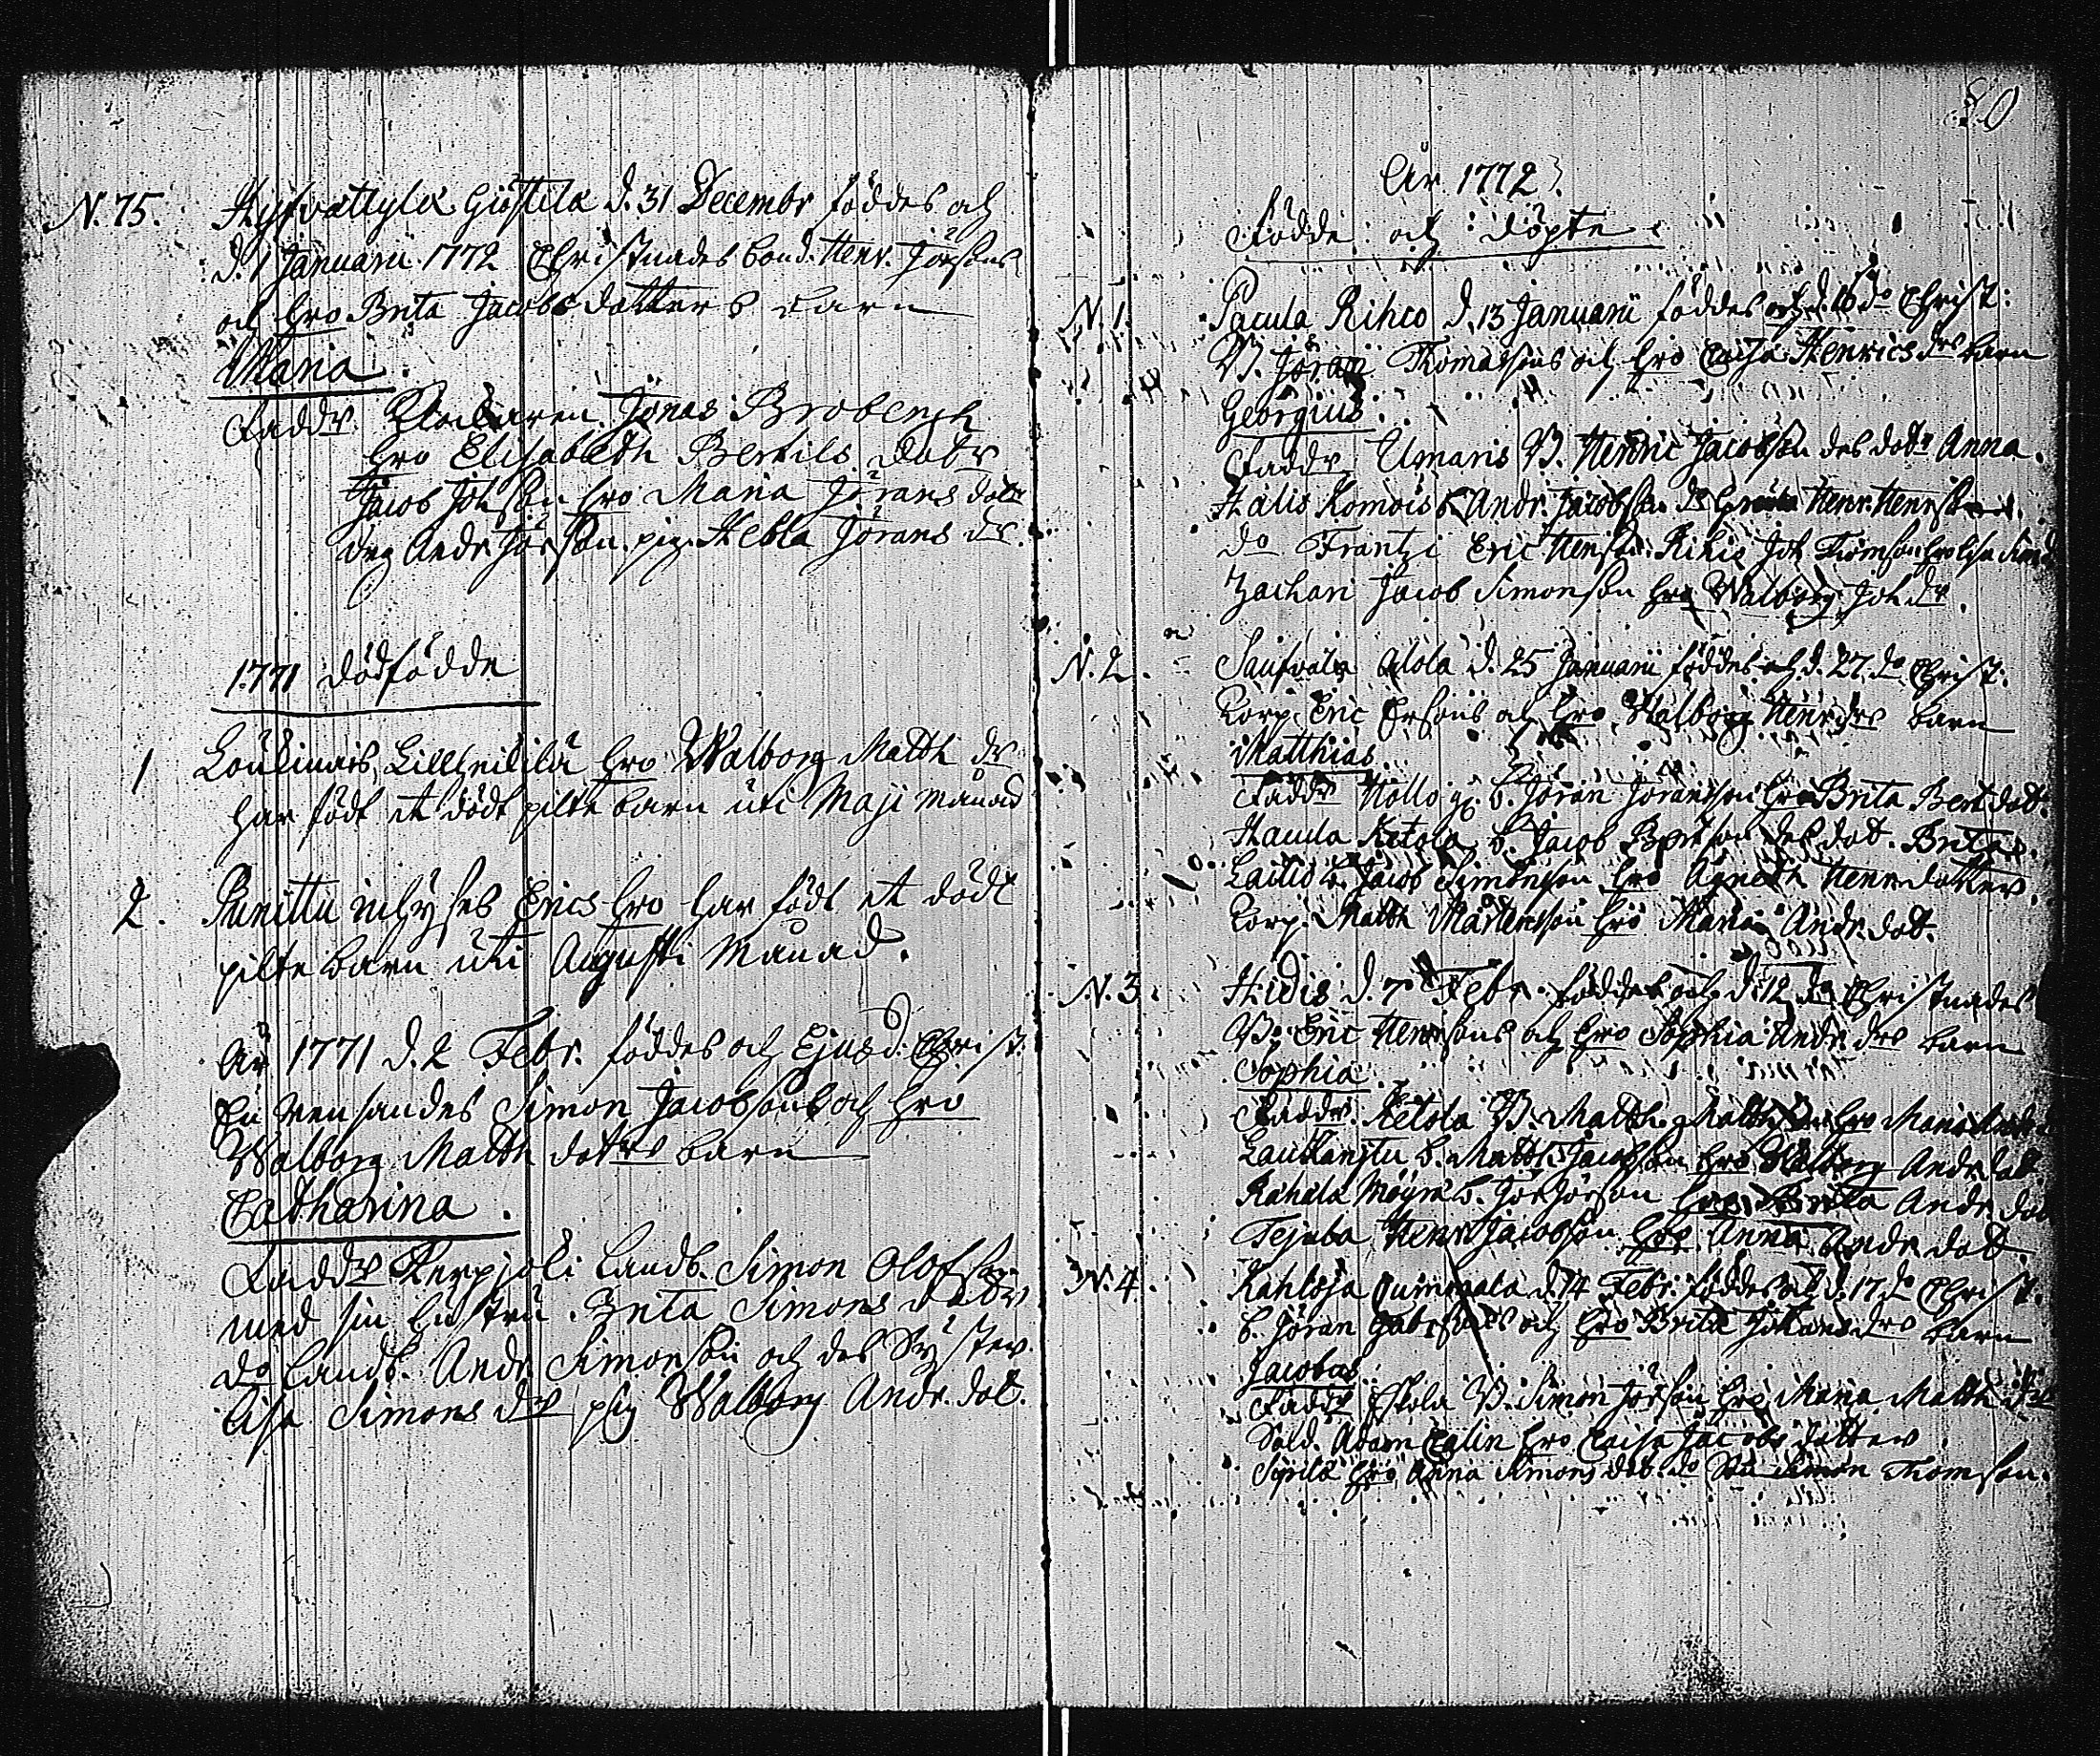 N. 75. Hyfvättylä Giöstilä d. 31 Decembr föddes och
d. 1 Januarii 1772 Christnades bond. Henr. Jörsons
och hro Brita Jacobs dotters barn
Maria.
Faddr Klockaren Jonas Brobergh
hro Elisabeth Bertils dotr
Jacob Johsson hro Maria Jörans dotr
drg Andr. Jörsson pig. Hebla Jörans dr.
1771 dödfödde
1 hro Walborg Matth dr
har födt et dödt pilte barn uti Maji månad
2. Erics hro har födt et dödt
pilte barn uti Augusti Månad.
År 1771 d. 2 Febr. föddes och Ejusd. Christ.
Simon Jacobsons och hro
Walborg Matth dotrs barn
Catharina.
Faddr Landb. Simon Olofson
med sin hustru Brita Simons dotr
do Landb. Andr Simonson och des Syster
Lisa Simons dr pig Walborg Andr. dot.
50
År 1772.
Födde och döpte
N. 1. Pacula Rihco d. 13 Januarii föddes och d. 16 do Christ:
B. Jöran Thomassons och hro Caisa Henrics drs barn
Georgius.
Faddr Umaris B. Henric Jacobsson des dotr Anna.
Hälis Komois B. Andr. Jacobsson Henr. Henrsson
do Frantzi Eric Henrson Rihco Joh Thomson hro Lisa Simd
Zachari Jacob Simonson hro Walborg Joh dr.
N. 2. Alola d. 25 Januarii föddes och d. 27 do Christ:
Corp. Eric Ersons och hro Walborg Henr drs barn
Matthias
Faddr b. Jöran Jöransson hro Brita Bert dot.
Haucla Ketola b. Jacob des dot. Brita.
Laitio b. Jacob Simonson hro Agneta Henr dotter
Corp. Matth Mårtensson hro Maria Andr. dot.
N. 3. Hidis d. 7 Febr. föddes och d. 12 do Christnades
B. Eric Henrsons och hro Sophia Andr. drs barn
Sophia.
Faddr. Ketola B. Matth. Matthson hro Maria
b. Matth. Jacobson hro Walborg Andr. dot
Rahala b. Jör Jörson hro Brita Andr. dot
Tejuba Henr Jacobson hro Anna Andr dot.
N. 4. Kahloja d. 14 Febr. föddes och d. 17 do Christ.
b. Jöran och hro Brita Johans drs barn
Jacobus.
Faddr B. Simon Jörson hro Maria Matth dr
Sold. Adam hro Caisa Jacobs dotter
hro Anna Simons dot. do Simon Thomson.